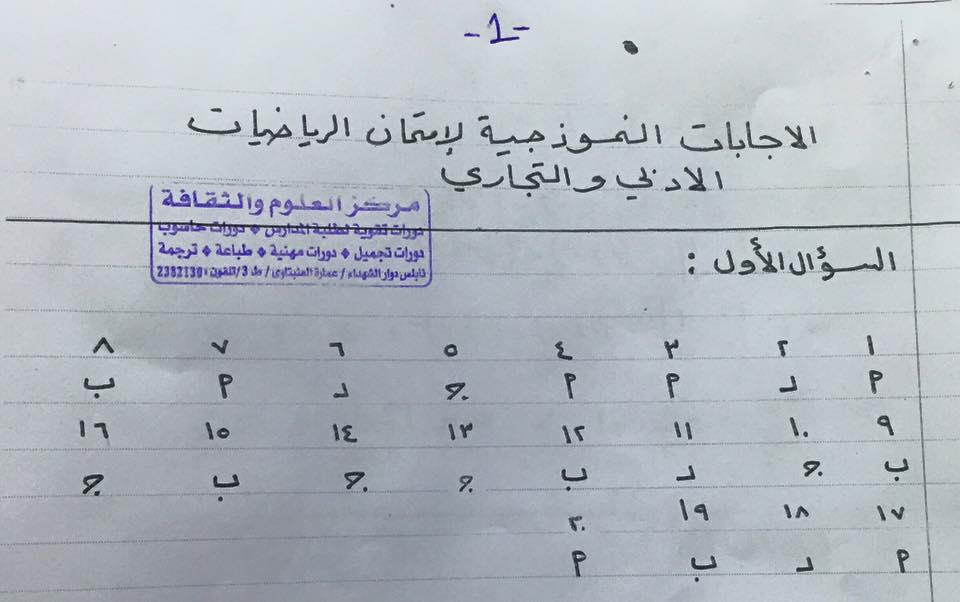 -1-
الاجابات النموذجية لإمتحان الرياضيات
الادبي والتجاري
مركز العلوم والثقافة
دورات تقوية لطلبة المدارس ❖ دورات حاسوب
دورات تجميل ❖ دورات مهنية ❖ طباعة ❖ ترجمة
نابلس دوار الشهداء / عمارة العنبتاوي / ط 3 / تلفون: 2382130
السؤال الأول :
١ ٢ ٣ ٤ ٥ ٦ ٧ ٨
م د م م ج د م ب
٩ ١٠ ١١ ١٢ ١٣ ١٤ ١٥ ١٦
ب ج د ب ج ج ب ج
١٧ ١٨ ١٩ ٢٠
م د ب م